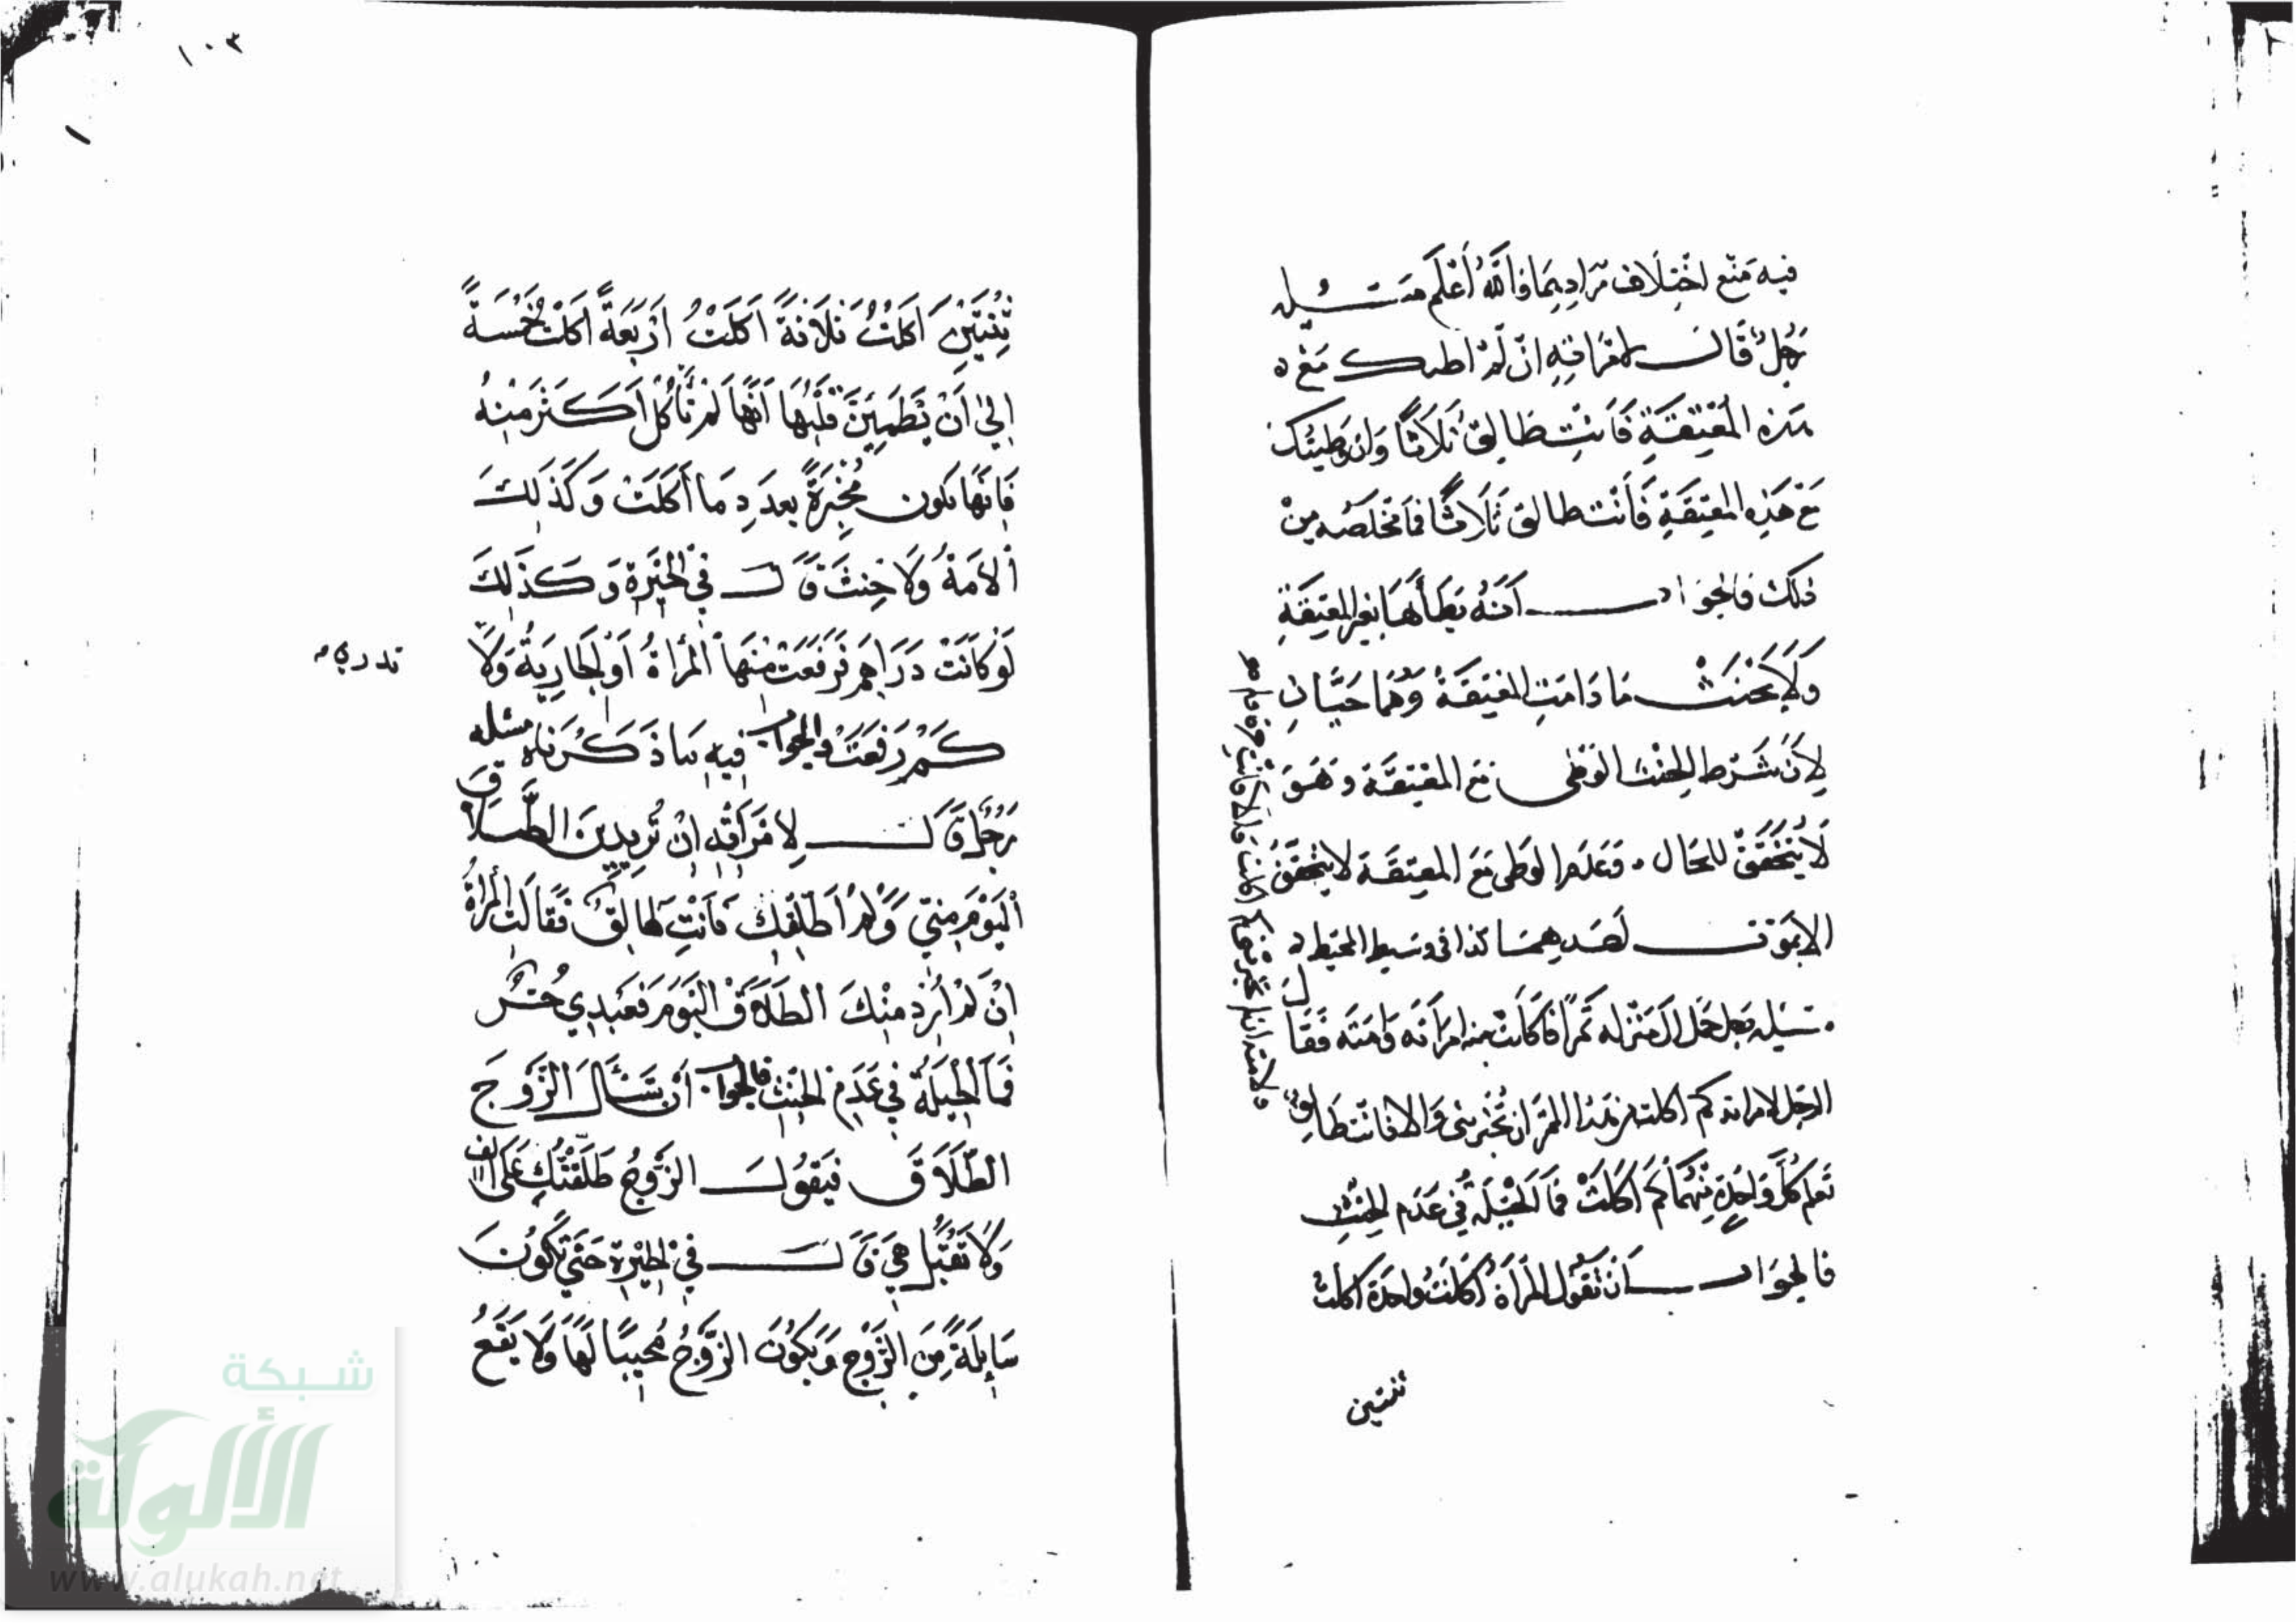 فيه مَنَع اختِلَاف مُرَادِيهمَا وَاللَّه أَعْلَم مَسْئَلَه
رَجُلٌ قَالَ لامْرَاتِهِ انْ لَمْ اطَاك مَعَ
هَذِه المِقنَعَةِ فَأَنْتِ طَالِقٌ ثَلَاثًا وَاِنْ وَطِيتُك
مَعَ هَذِه المِقنَعَةِ فَأَنْت طالق ثَلَاثًا فمَا مَخْلَصُه مِنْ
ذلكَ فالجَوَاب أَنَّهُ يَطَأُهَا بغَير المِقنَعَةِ
وَلَا يَحْنَثُ مَا دَامَتِ المِقنَعَةُ وَهُمَا حَيَّانِ
لِأَنَّ شَرط الحِنْث الوَطى مَعَ المِقنَعَة وَهُوَ
لَا يَتَحَقَّقُ للحَال . وَعَدَم الوَطى مَعَ المِقنَعَة لا يتَحَقَّقُ
الا بمَوْت احَدِهِمَا كذا فى وسَيط المحيَط
مسَئله رَجل حَمَل الى مَنْزله تَمرًا فاكَلَتْ منه امرَاَته وَامَتَه فَقَالَ
الرجَل لامراته كم اكلت من هَذا التمَر ان تُخبرينى وَالا فانت طَالِقٌ
كُل وَاحِدَةٍ مِنْهُمَا كَم اَكَلَتْ فمَا الحِيْلَه فِي عَدَم الحِنْثِ
فالجوَاب اَنْ تَقُولَ المَرْأَةُ اَكَلتُ وَاحِدَة اكلتُ
ثنتين
١٠٣
ثِنْتَيْنِ اَكَلتُ ثَلَاثَةً اَكَلْتُ اَرْبَعَةً اَكَلْتُ خَمْسَةً
اِلىٰ اَنْ يَطْمَئِنَّ قَلْبُهَا اَنَّهَا لَمْ تَأْكُلْ اَكثَرَ مِنْهُ
فَاِنَّهَا تكون مُخْبِرَةً بِعَدَدِ مَا اَكَلَتْ وَكَذَلِكَ
اَلْاَمَةُ وَلَا حِنْثَ قَالَ فِي الحَيْرَةِ وَكَذَلِكَ
لَوْ كَانَتْ دَرَاهِمَ فَرَفَعَتْ مِنْهَا اَلْمَرْأَةُ اَوْ الجَارِيَةُ وَلَا
تدري
كَمْ رَفَعَتْ وَالجَوَاب فِيهِ مَا ذَكَرْنَاهُ مسئله
رَجُلٌ قَالَ لِامْرَأَتِهِ اِنْ تُرِيدِينَ الطَّلَاقَ
اَلْيَوْمَ مِنِّي وَلَمْ اُطَلِّقْكِ فَاَنْتِ طَالِقٌ فَقَالَتِ الْمَرْأَةُ
اِنْ لَمْ اُرِدْ مِنْكَ الطَّلَاقَ الْيَوْمَ فَعَبْدِي حُرٌّ
فَمَا الْحِيلَةُ فِي عَدَمِ الحِنْثِ فالجَوَاب اَنْ تَسْأَلَ الزَّوْجَ
الطَّلَاقَ فَيَقُولَ الزَّوْجُ طَلَّقْتُكِ عَلَى اَلْف
وَلَا تَقْبَلُ هِيَ قَالَ فِي الحَيْرَةِ حَتَّى تَكُونَ
سَائِلَةً مِنَ الزَّوْجِ وَيَكُونُ الزَّوْجُ مُجِيبًا لَهَا وَلَا يَقَعُ
شبكة
الألوكة
www.alukah.net